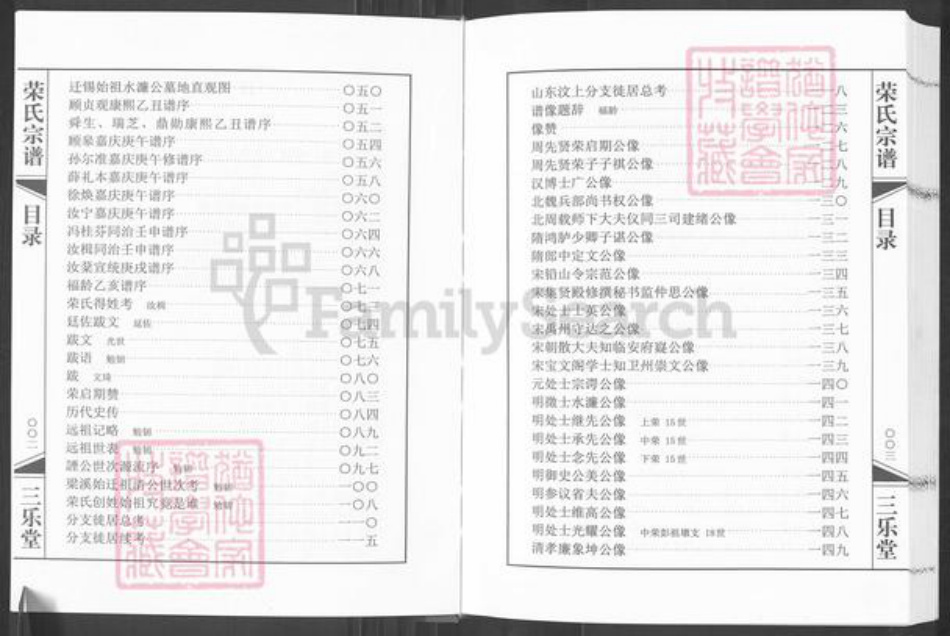 荣氏宗谱
目录
〇〇二
三乐堂
迁锡始祖水濂公墓地直观图 〇五〇
顾贞观康熙乙丑谱序 〇五一
舜生、瑞芝、鼎勋康熙乙丑谱序 〇五二
顾皋嘉庆庚午谱序 〇五四
孙尔准嘉庆庚午修谱序 〇五六
薛礼本嘉庆庚午谱序 〇五八
徐焕嘉庆庚午谱序 〇六〇
汝宁嘉庆庚午谱序 〇六二
冯桂芬同治壬申谱序 〇六四
汝楫同治壬申谱序 〇六六
汝棻宣统庚戌谱序 〇六八
福龄乙亥谱序 〇七一
荣氏得姓考 汝楫 〇七三
廷佐跋文 廷佐 〇七四
跋文 光世 〇七五
跋语 勉韧 〇七六
跋 文琦 〇八〇
荣启期赞 〇八三
历代史传 〇八四
远祖记略 勉韧 〇八九
远祖世表 勉韧 〇九二
諲公世次源流序 勉韧 〇九七
梁溪始迁祖清公世次考 勉韧 一〇〇
荣氏创姓始祖究竟是谁 勉韧 一〇八
分支徙居总考 一一〇
分支徙居续考 一一五
山东汶上分支徙居总考 一一八
谱像题辞 福龄 一二三
像赞 一二六
周先贤荣启期公像 一二七
周先贤荣子子祺公像 一二八
汉博士广公像 一二九
北魏兵部尚书权公像 一三〇
北周载师下大夫仪同三司建绪公像 一三一
隋鸿胪少卿子谌公像 一三二
隋郎中定文公像 一三三
宋铅山令宗范公像 一三四
宋集贤殿修撰秘书监仲思公像 一三五
宋处士士英公像 一三六
宋禹州守达之公像 一三七
宋朝散大夫知临安府嶷公像 一三八
宋宝文阁学士知卫州崇文公像 一三九
元处士宗谔公像 一四〇
明徵士水濂公像 一四一
明处士继先公像 上荣 15世 一四二
明处士承先公像 中荣 15世 一四三
明处士念先公像 下荣 15世 一四四
明御史公美公像 一四五
明参议省夫公像 一四六
明处士维高公像 一四七
明处士光耀公像 中荣彭祖墩支 18世 一四八
清孝廉象坤公像 一四九
荣氏宗谱
目录
〇〇三
三乐堂
FamilySearch